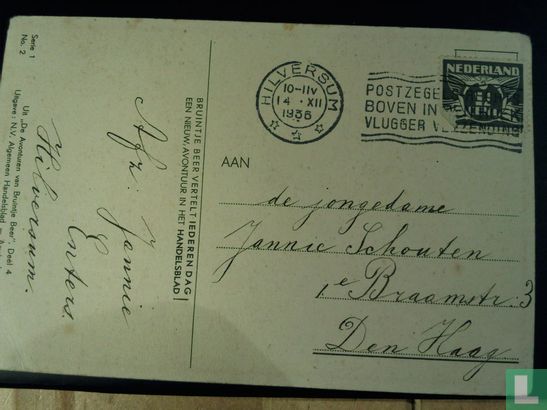 Serie 1
No. 2
Uit „De Avonturen van Bruintje Beer", Deel 4.
Uitgave: N.V. Algemeen Handelsblad
BRUINTJE BEER VERTELT IEDEREN DAG
EEN NIEUW AVONTUUR IN HET HANDELSBLAD!
Afz: Jannie
Enters
Hilversum.
HILVERSUM
10-11V
14 XII
1936
POSTZEGE
BOVEN IN
VLUGGER VERZENDING
NEDERLAND
AAN
de jongedame
Jannie Schouten
1e Braamstr: 3
Den Haag
L